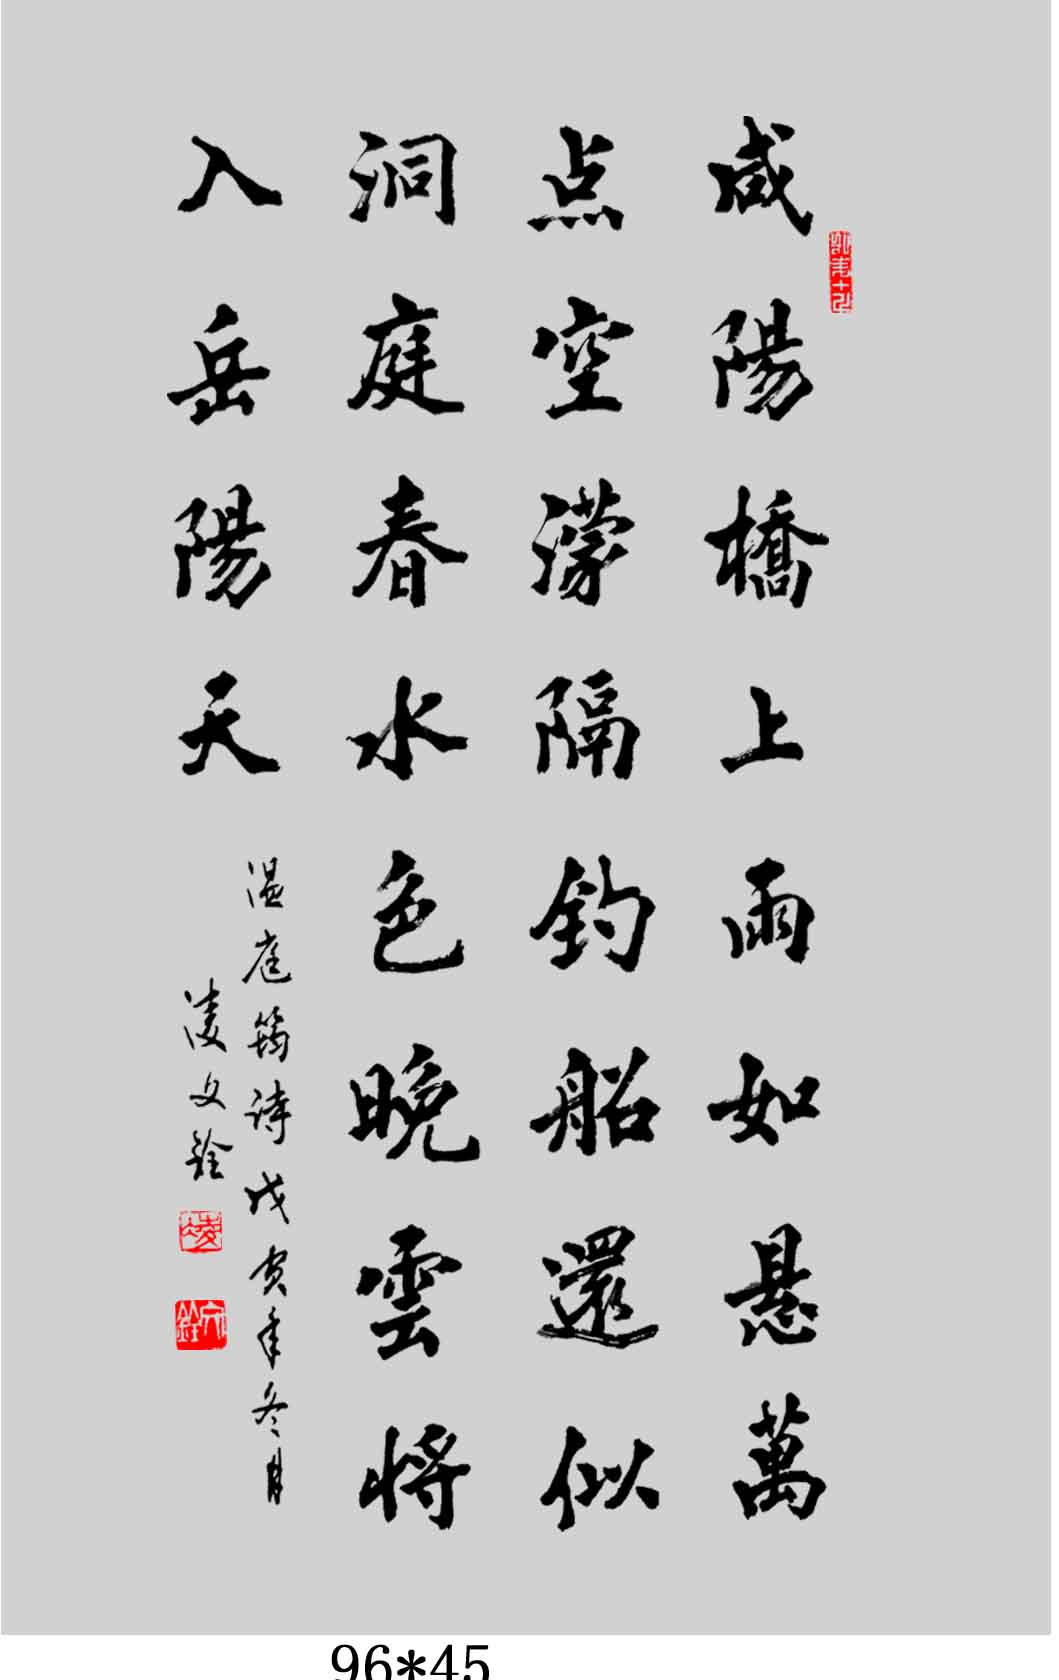 咸陽橋上雨如悬萬
点空濛隔钓船還似
洞庭春水色晚雲將
入岳陽天
温庭筠诗戊寅年冬月
凌文銓
96*45